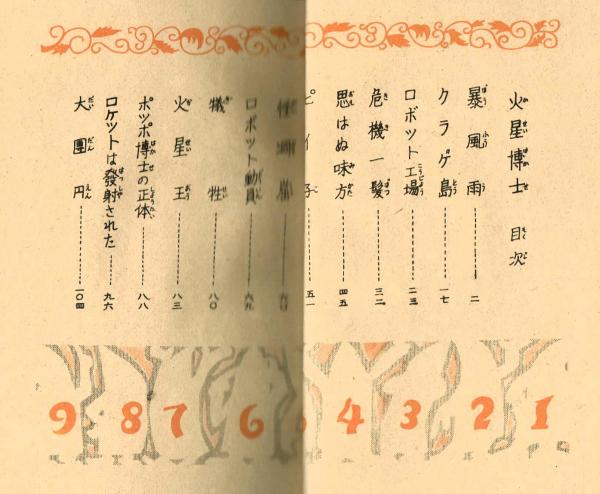 火星博士 目次
暴風雨 二
クラゲ島 一七
ロボツト工場 二三
危機一髪 三二
思はぬ味方 四五
ピイ子 五一
ロボツト動員 六九
犠牲 八〇
火星王 八三
ポツポ博士の正体 八八
ロケツトは發射された 九六
大團円 一〇四
1 2 3 4 6 7 8 9